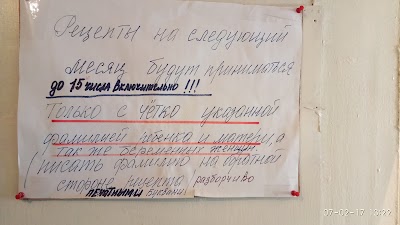 Рецепты на следующий
месяц будут приниматься
до 15 числа включительно!!!
Только с чётко указанной
фамилией ребенка и матери, а
так же беременных женщин.
писать фамилию на обратной
стороне рецепта разборчиво
печатными буквами
07-02-17 13:22